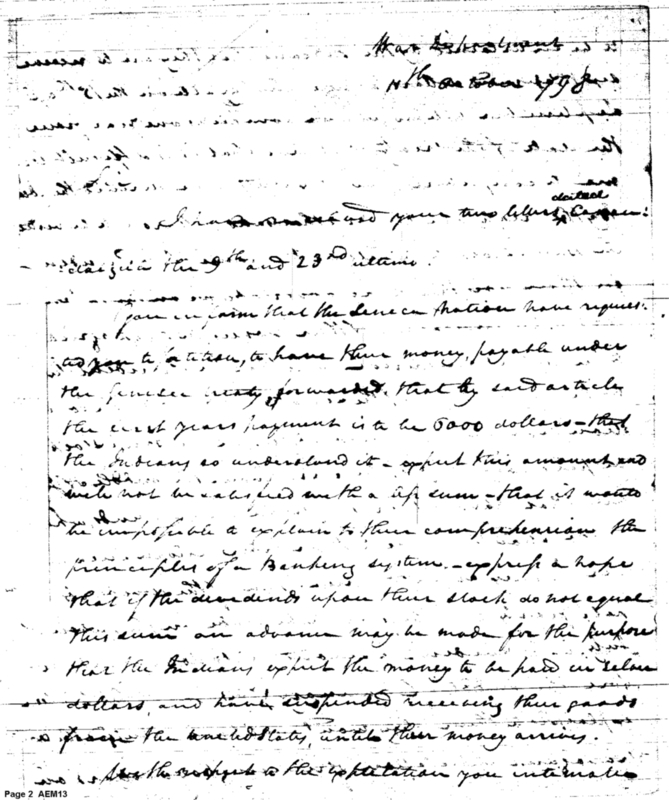 War Department
11th October 1798
I have received your two letters dated Canan:
daigua the 9th and 23rd ultimo.
You inform that the Seneca Nation have reques-
ted you to attion, to have their money, payable under
the Genesee treaty forwarded. that by said article
the first years payment is to be 6000 dollars — that
the Indians so understand it — expect this amount, and
will not be satisfied with a less sum — that it would
be impossible to explain to their comprehension the
principles of a Banking system. — express a hope
that if the dividends upon their stock do not equal
this sum an advance may be made for the purpose
that the Indians expect the money to be paid in silver
dollars, and have suspended receiving their goods
from the United States, until their money arrives.
With respect to the expectation you intimate
Page 2 AEM13